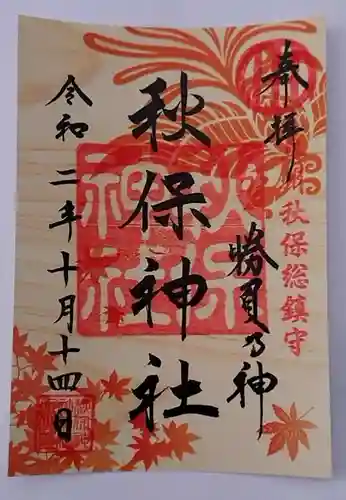 奉拝
秋保総鎮守
勝負の神
秋保神社
令和二年十月十四日
秋保神社